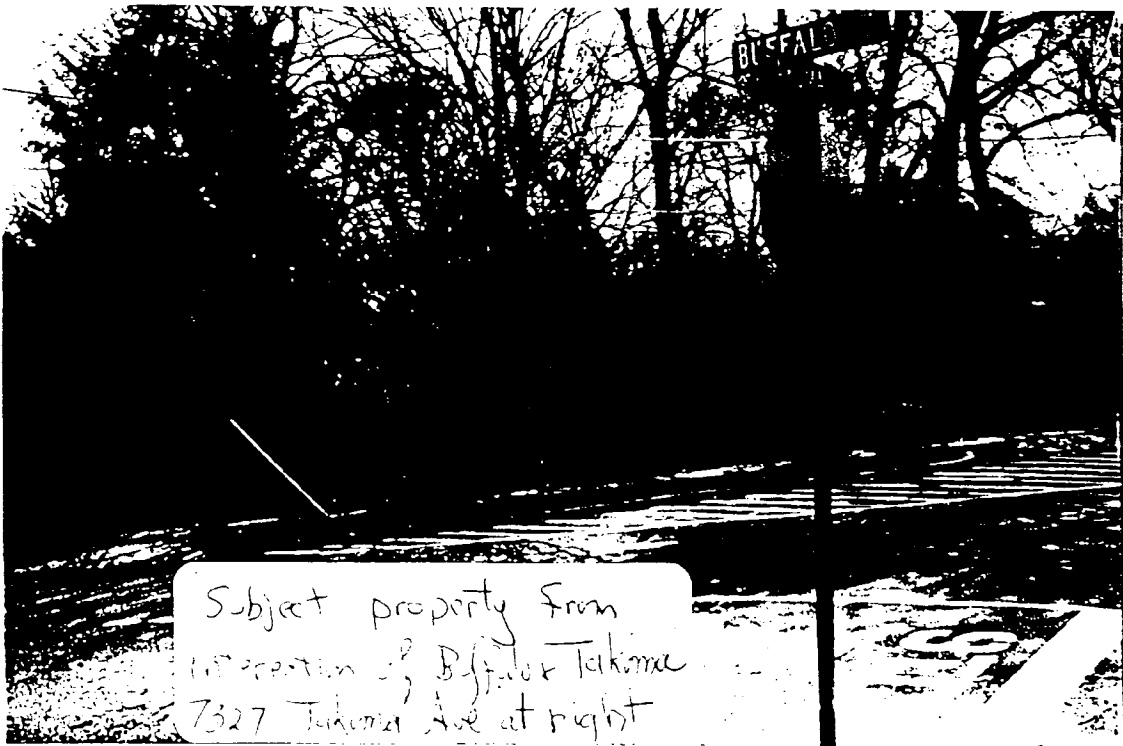 BUFFALO
Subject property from
intersection of Buffalo & Takoma
7327 Takoma Ave at right